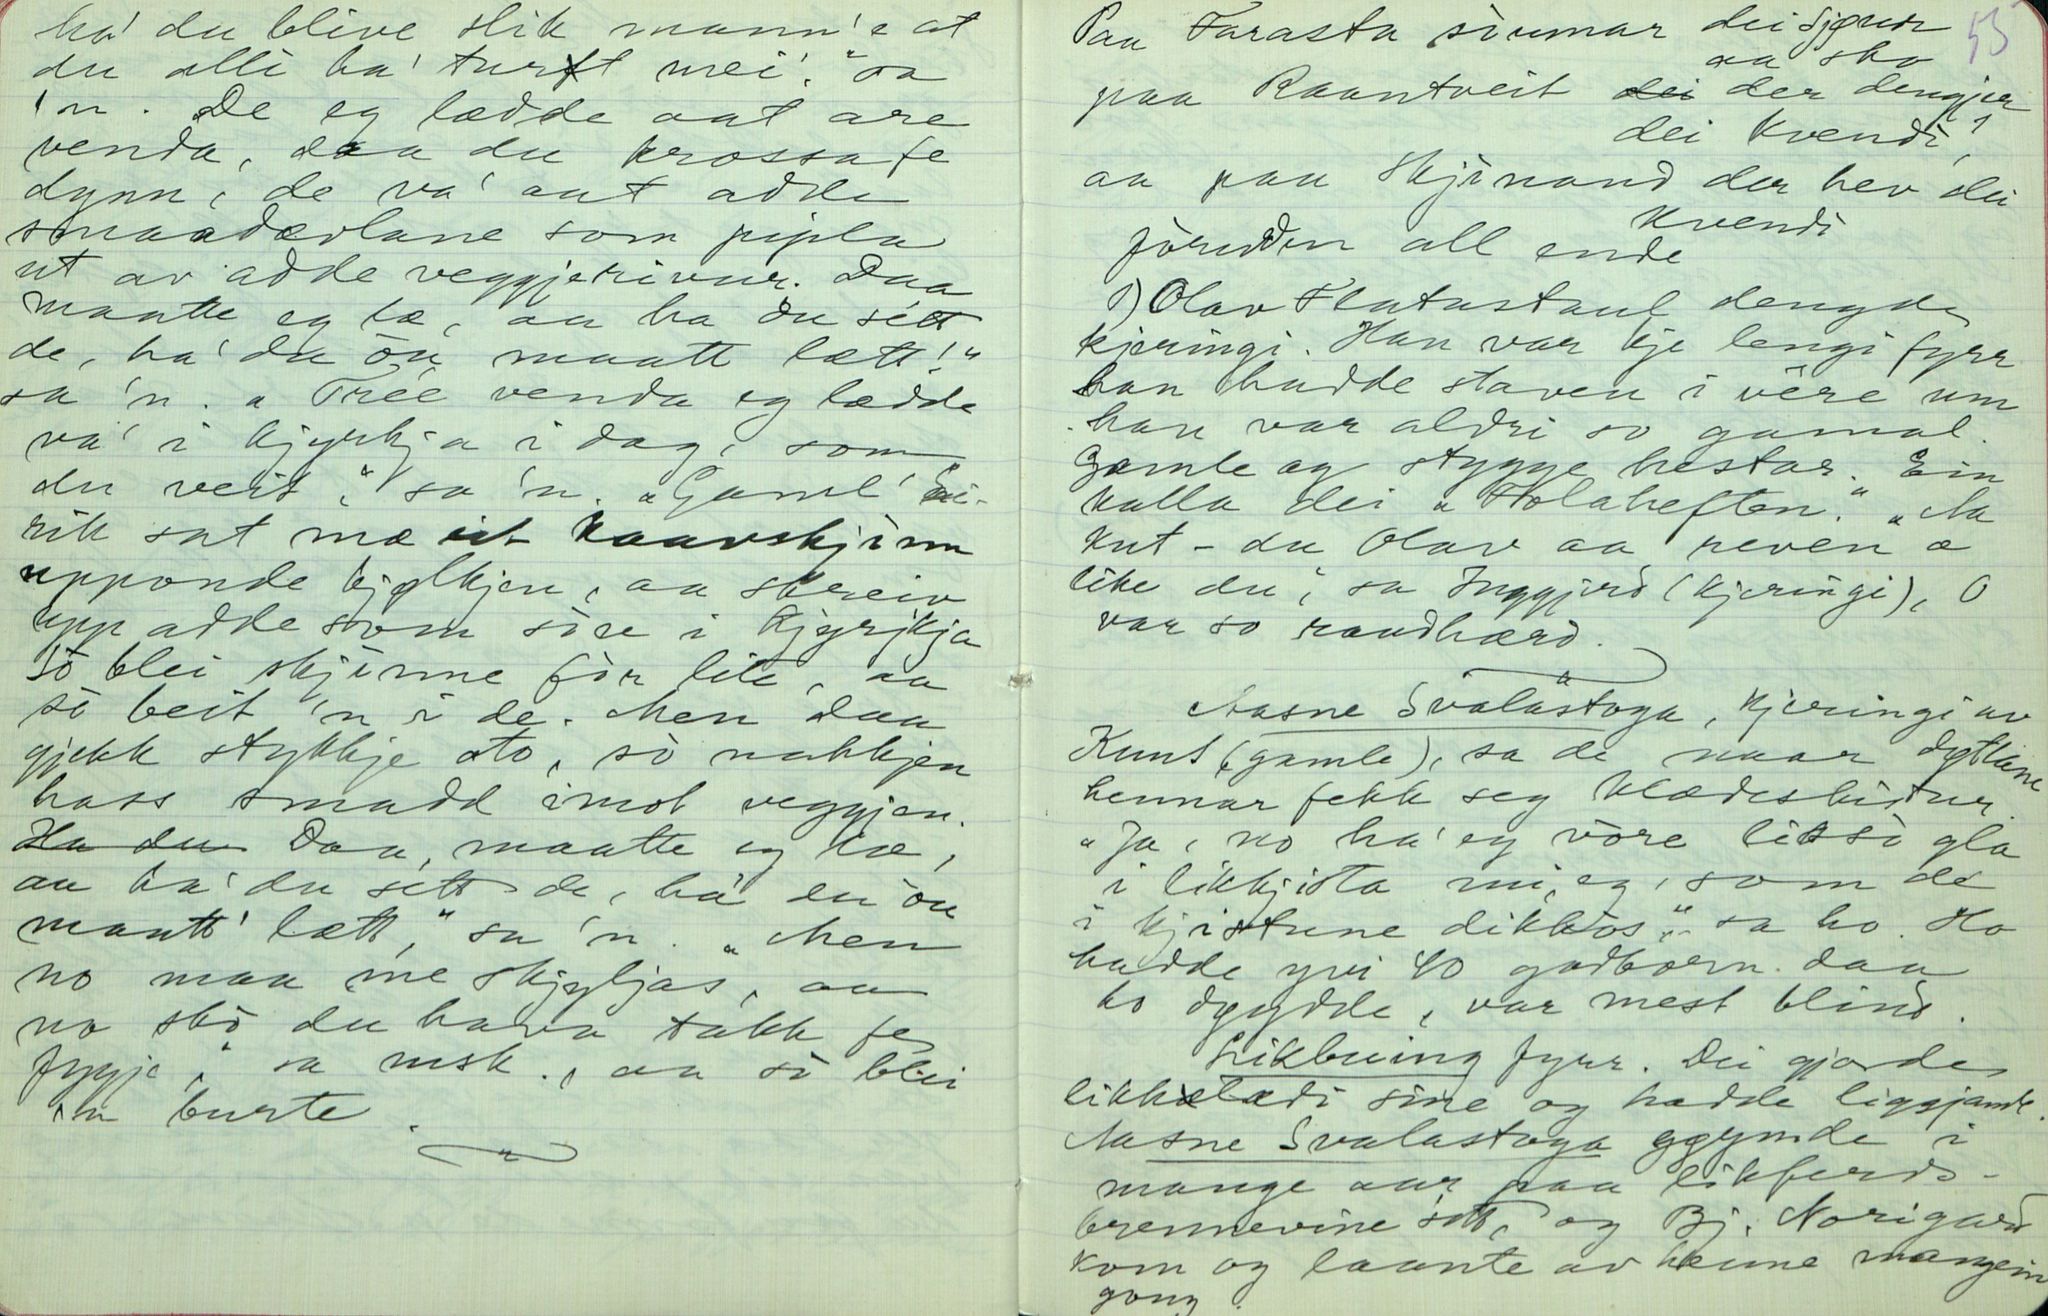 ha' du blive slik mann'e at
du alli ha' turft mei'." sa
'n. "De eg lædde aat are
venda, daa du krossa fe
dynn', de va' aat adde
smaadævlane som pipla
ut av adde veggjerivur. Daa
maatte eg læ, aa ha du sétt
de, ha' du òu maatt lætt!"
sa 'n. "Trée venda eg lædde
va' i kjyrkja i dag, som
du veit," sa 'n. "Gaml' Ei-
rik sat mæ eit kaavskjinn
upponde kjølkjen, aa skreiv
upp adde som sòve i kjyrkja
sò blei skjinne fòr lite, aa
sò beit 'n i de. Men daa
gjekk stykkje åto, sò nakkjen
hass smadd imot veggjen.
Ha du Daa, maatte eg læ,
aa ha' du sétt de, ha' du òu
maatt' lætt," sa 'n. "Men
no maa me skjyljas, aa
no sko du hava takk fe
fyggje," sa msk., aa sò blei
'n burte.

55
Paa Tarasta sìumar dei sjøur
aa sko
paa Raantveit dei der dengjer
dei kvendi,
aa paa Skjinand der hev dei
kvendi
jòruden all ende
1) Olav Flatastaul dengde
kjeringi. Han var kje lengi fyrr
han hadde staven i vêre um
han var aldri so gamal.
Gamle og stygge hestar. Ein
kalla dei "Holaheften." "Aa
Knt - du Olav aa reven æ
like du", sa Inggjerd (kjeringi), O
var so raudhærd.
Aasne Svalastoga, kjeringi av
Knut (gamle), sa de naar døttane
hennar fekk seg klædeskistur.
"Ja, no ha' eg vòre likso gla
i likkjista mi, eg, som de
i kjistune dikkòs," sa ho. Ho
hadde yvi 40 godborn daa
ho døydde, var mest blind.
Likbuing fyrr. Dei gjorde
likklædi sine og hadde liggjande.
Aasne Svalastoga gøymde i
mange aar paa likferds-
brennevine sitt, og Bj. Norigard
kom og laante av henne mangein
gong.